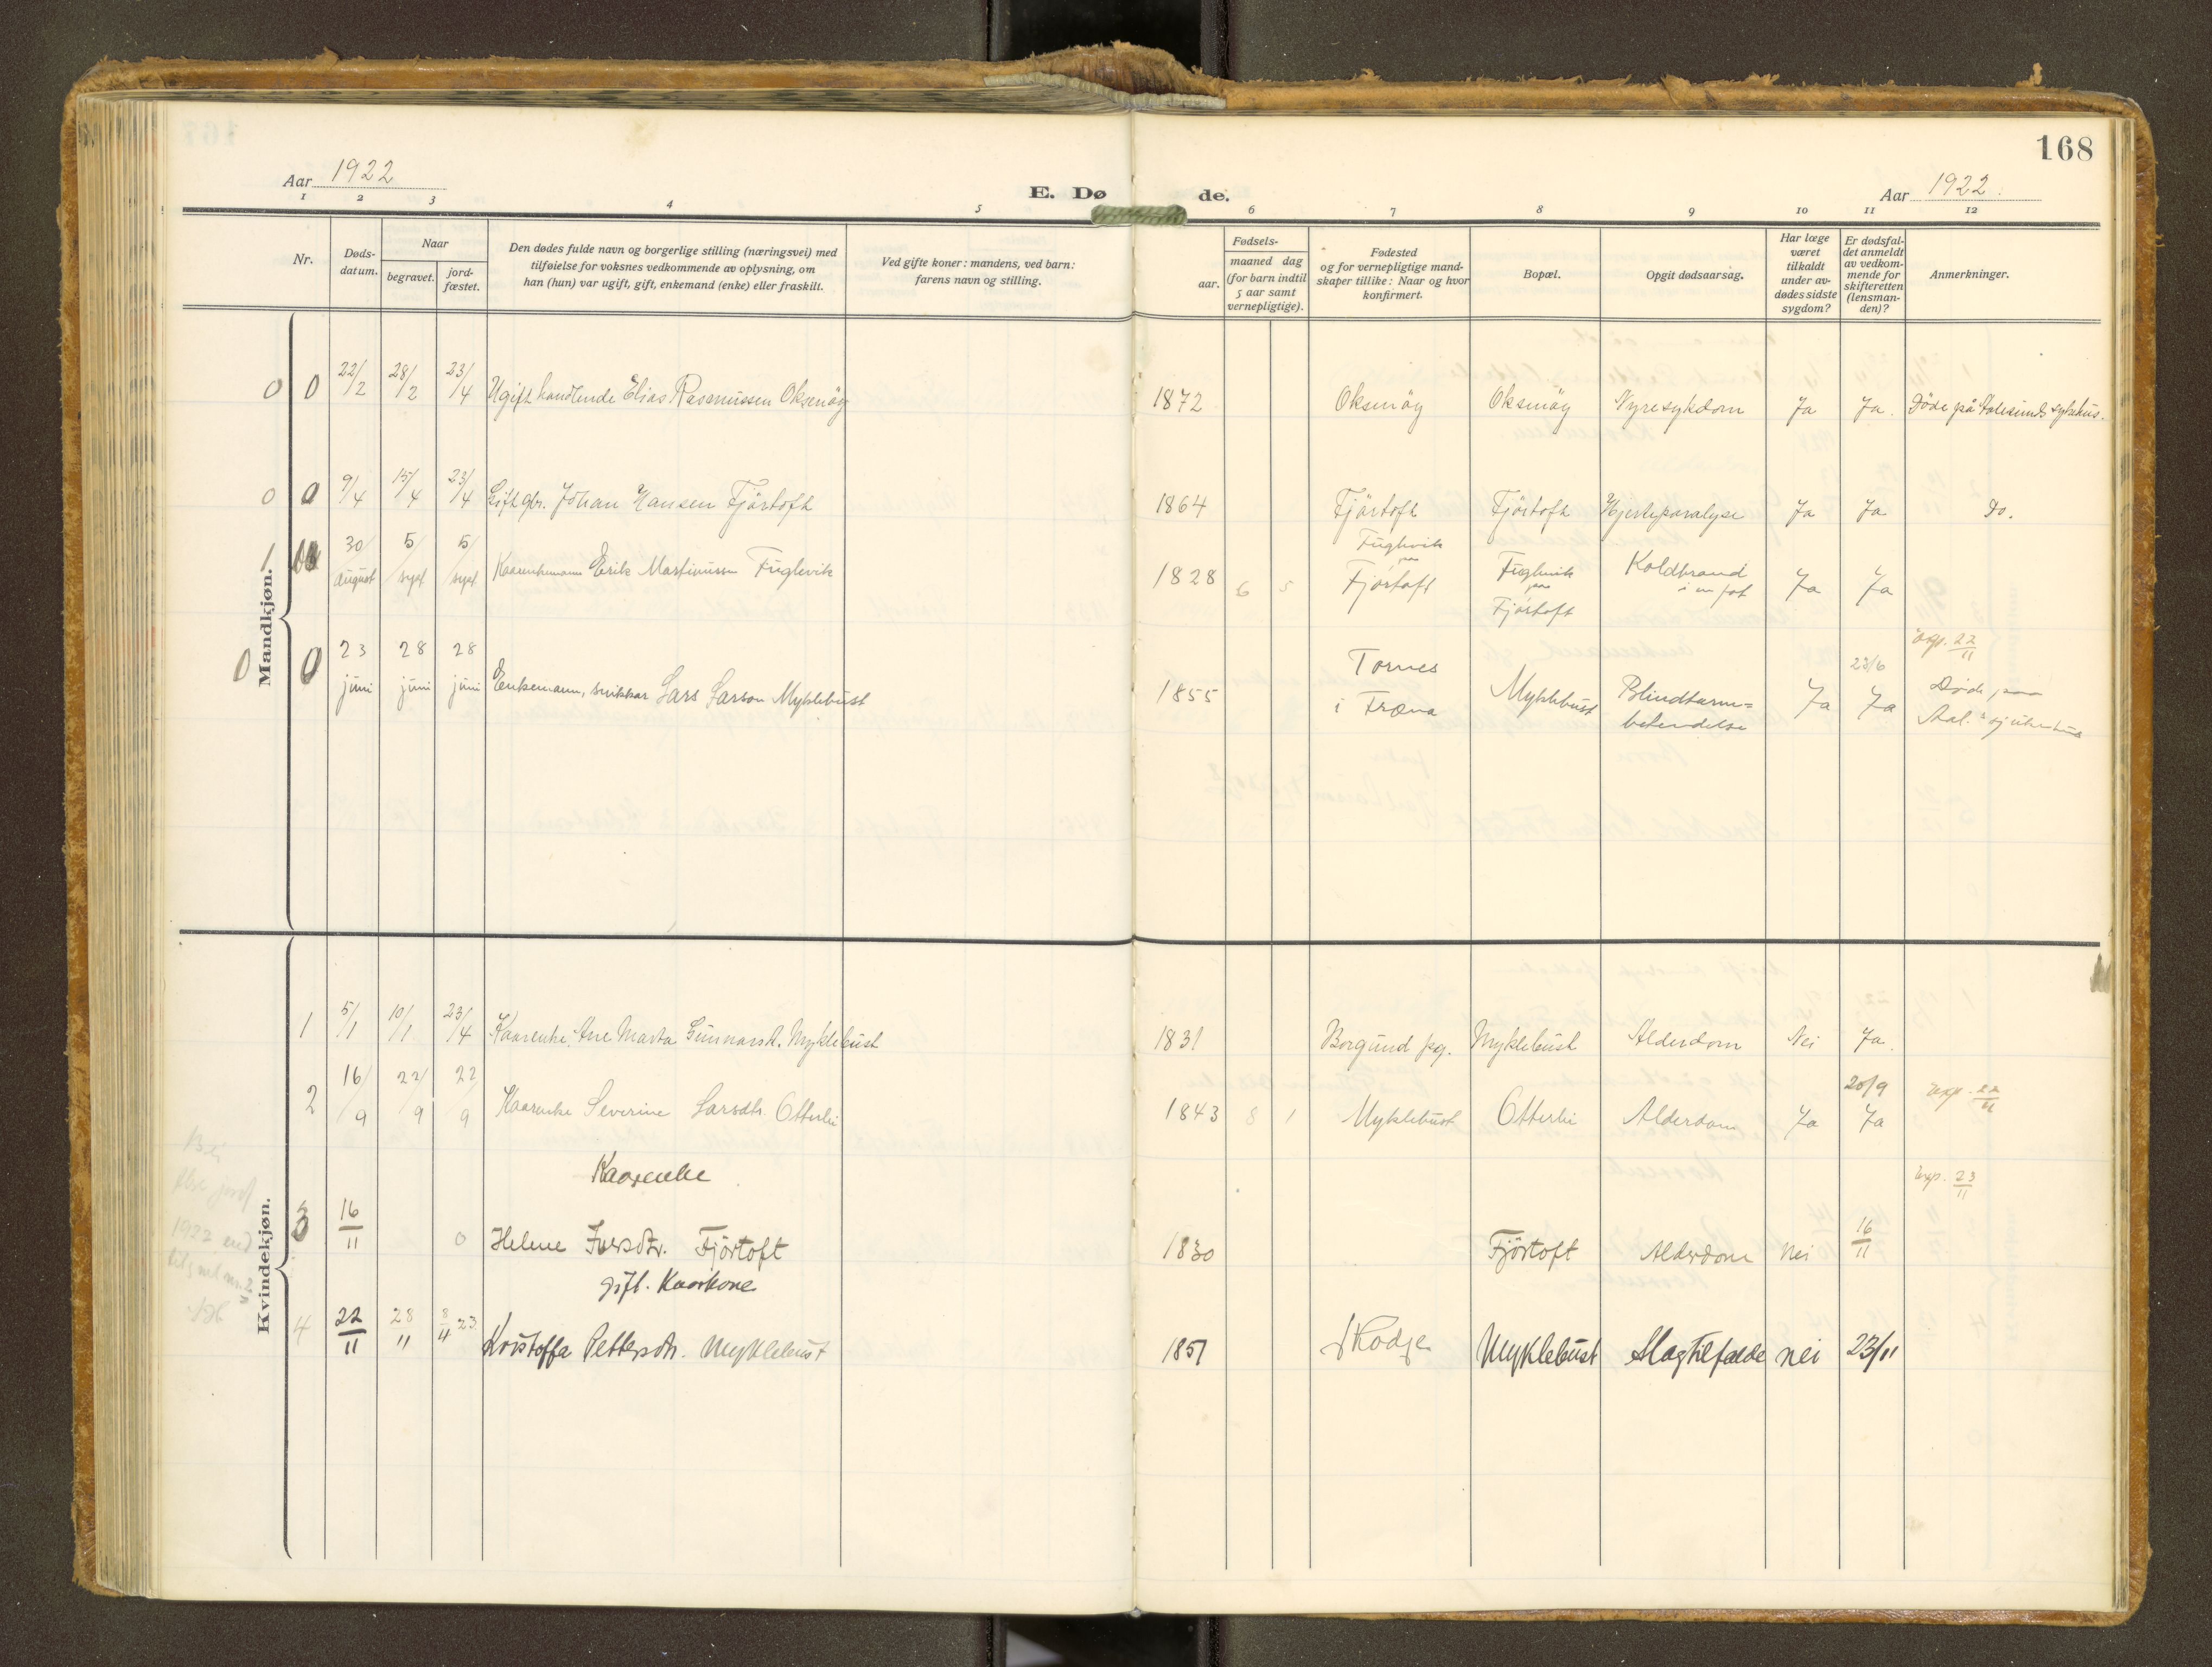 168
Aar 1922
E. Døde.
Aar 1922.
1 2 3 4 5 6 7 8 9 10 11 12
Nr.
Dødsdatum.
Naar
begravet.
jordfæstet.
Den dødes fulde navn og borgerlige stilling (næringsvei) med
tilføielse for voksnes vedkommende av oplysning, om
han (hun) var ugift, gift, enkemand (enke) eller fraskilt.
Ved gifte koner: mandens, ved barn:
farens navn og stilling.
Fødsels-
aar.
maaned dag
(for barn indtil
5 aar samt
vernepligtige).
Fødested
og for vernepligtige mand-
skaper tillike: Naar og hvor
konfirmert.
Bopæl.
Opgit dødsaarsag.
Har læge
været
tilkaldt
under av-
dødes sidste
sygdom?
Er dødsfal-
det anmeldt
av vedkom-
mende for
skifteretten
(lensman-
den)?
Anmerkninger.
Mandkjøn.
0 0 22/2 28/2 23/4 Ugift handlende Elias Rasmussen Oksnöy 1872 Oksnöy Oksnöy Nyresykdom Ja Ja. Döde på Aalesunds sykehus.
0 0 9/4 15/4 23/4 Gift gbr. Johan Hansen Fjörtoft 1864 Fjörtoft Fjörtoft Hjerteparalyse Ja Ja Do.
1 30/august 5/sept 5/sept Kaarenkemann Erik Martinussen Fuglevik 1828 6 5 Fuglevik paa Fjörtoft Fuglevik paa Fjörtoft Koldbrand i en fot Ja Ja
0 0 23 juni 28 juni 28 juni Enkemann, snikkar Lars Larson Myklebust 1855 Tornes i Fræna Myklebust Blindtarm=
betendelse Ja 23/6 Ja opg. 22/11
Døde paa
Aal. sjukehus
Kvindekjøn.
1 5/1 10/1 23/4 Kaarenke Ane Marta Gunnarsd. Myklebust 1831 Borgund pg. Myklebust Alderdom Nei Ja.
2 16/9 22/9 22/9 Kaarenke Severine Larsdtr. Otterlei 1843 8 1 Myklebust Otterlei Alderdom Ja 20/9 Ja opg. 22/11
Kaarenke
3 16/11 0 Helene Iversdtr. Fjörtoft 1830 Fjörtoft Alderdom nei 16/11 opg. 23/11
gift. Kaarkone
4 22/11 28/11 8/4 23 Kristoffa Pettersdtr. Myklebust 1851 Skodje Myklebust Slagtilfælde nei 23/11
1922